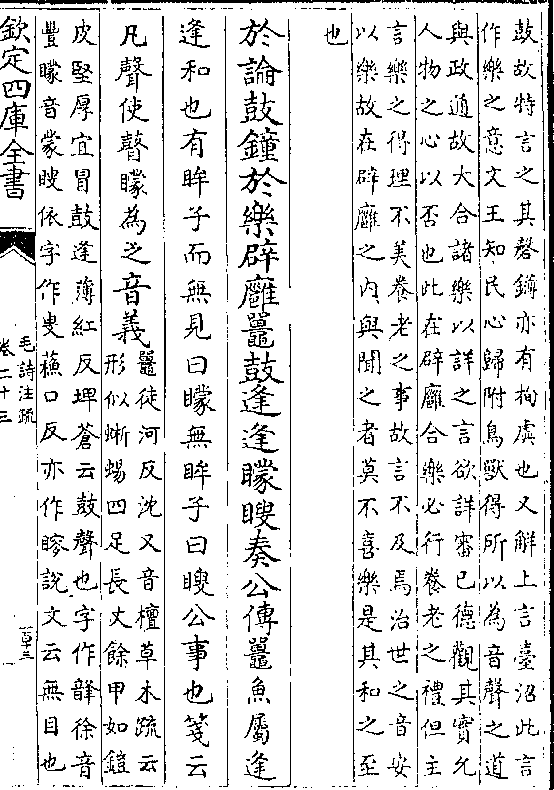 鼓故特言之其磬鎛亦有拘虡也又解上言臺沼此言
作樂之意文王知民心歸附鳥獸得所以為音聲之道
與政通故大合諸樂以詳之言欲詳審已德觀其實允
人物之心以否也此在辟廱合樂必行養老之禮但主
言樂之得理不美養老之事故言不及焉治世之音安
以樂故在辟廱之内與聞之者莫不喜樂是其和之至
也
於論鼓鐘於樂辟廱鼉鼓逢逢矇瞍奏公傳鼉魚屬逢
逢和也有眸子而無見曰矇無眸子曰瞍公事也箋云
凡聲使瞽矇為之音義鼉徒河反沈又音檀草木疏云
形似蜥蜴四足長丈餘甲如鎧
皮堅厚宜冒鼓逢薄紅反埤蒼云鼓聲也字作韸徐音
豐矇音蒙瞍依字作叟蘓口反亦作瞍說文云無目也
欽定四庫全書
毛詩注疏
卷二十三
一百十三